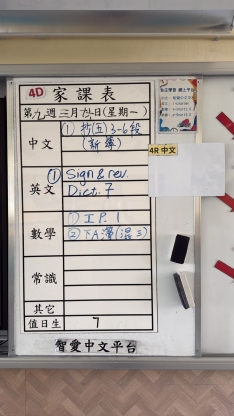 4D 家課表
第九週 三月九日(星期一)
中文 (1) 抄(五)3-6段
英文 ① Sign & rev.
Dict. 7
數學 ① I.P. 1
常識
其它
值日生 7
智愛中文平台
4R 中文